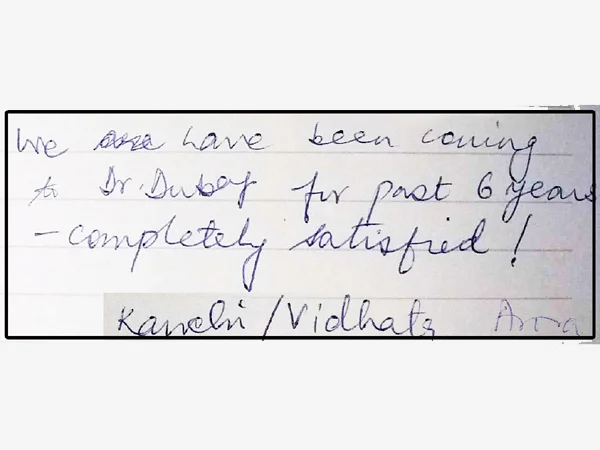 We have been coming
to Dr. Dubey for past 6 years
- completely satisfied!
Kanchi / Vidhata Arora